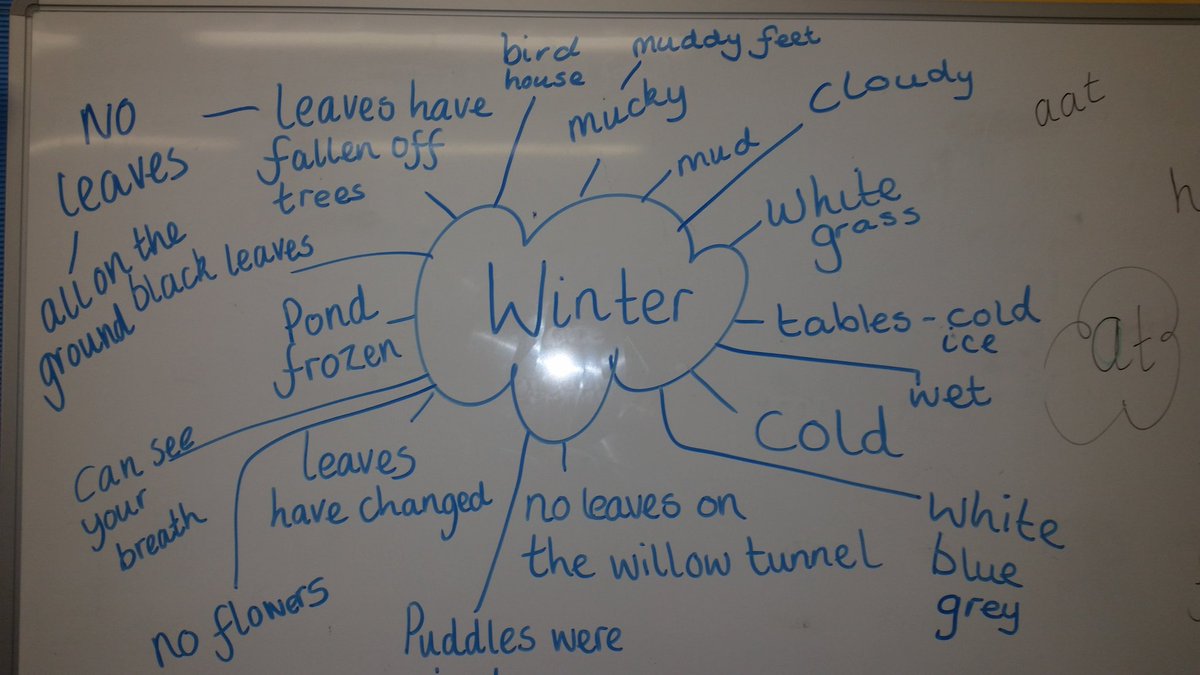 bird
house
muddy feet
mucky
cloudy
mud
No
leaves
leaves have
fallen off
trees
all on the
ground
black leaves
White
grass
Winter
Pond
frozen
tables - cold
ice
wet
cold
can see
your
breath
leaves
have changed
no leaves on
the willow tunnel
White
blue
grey
no flowers
Puddles were
aat
at
h